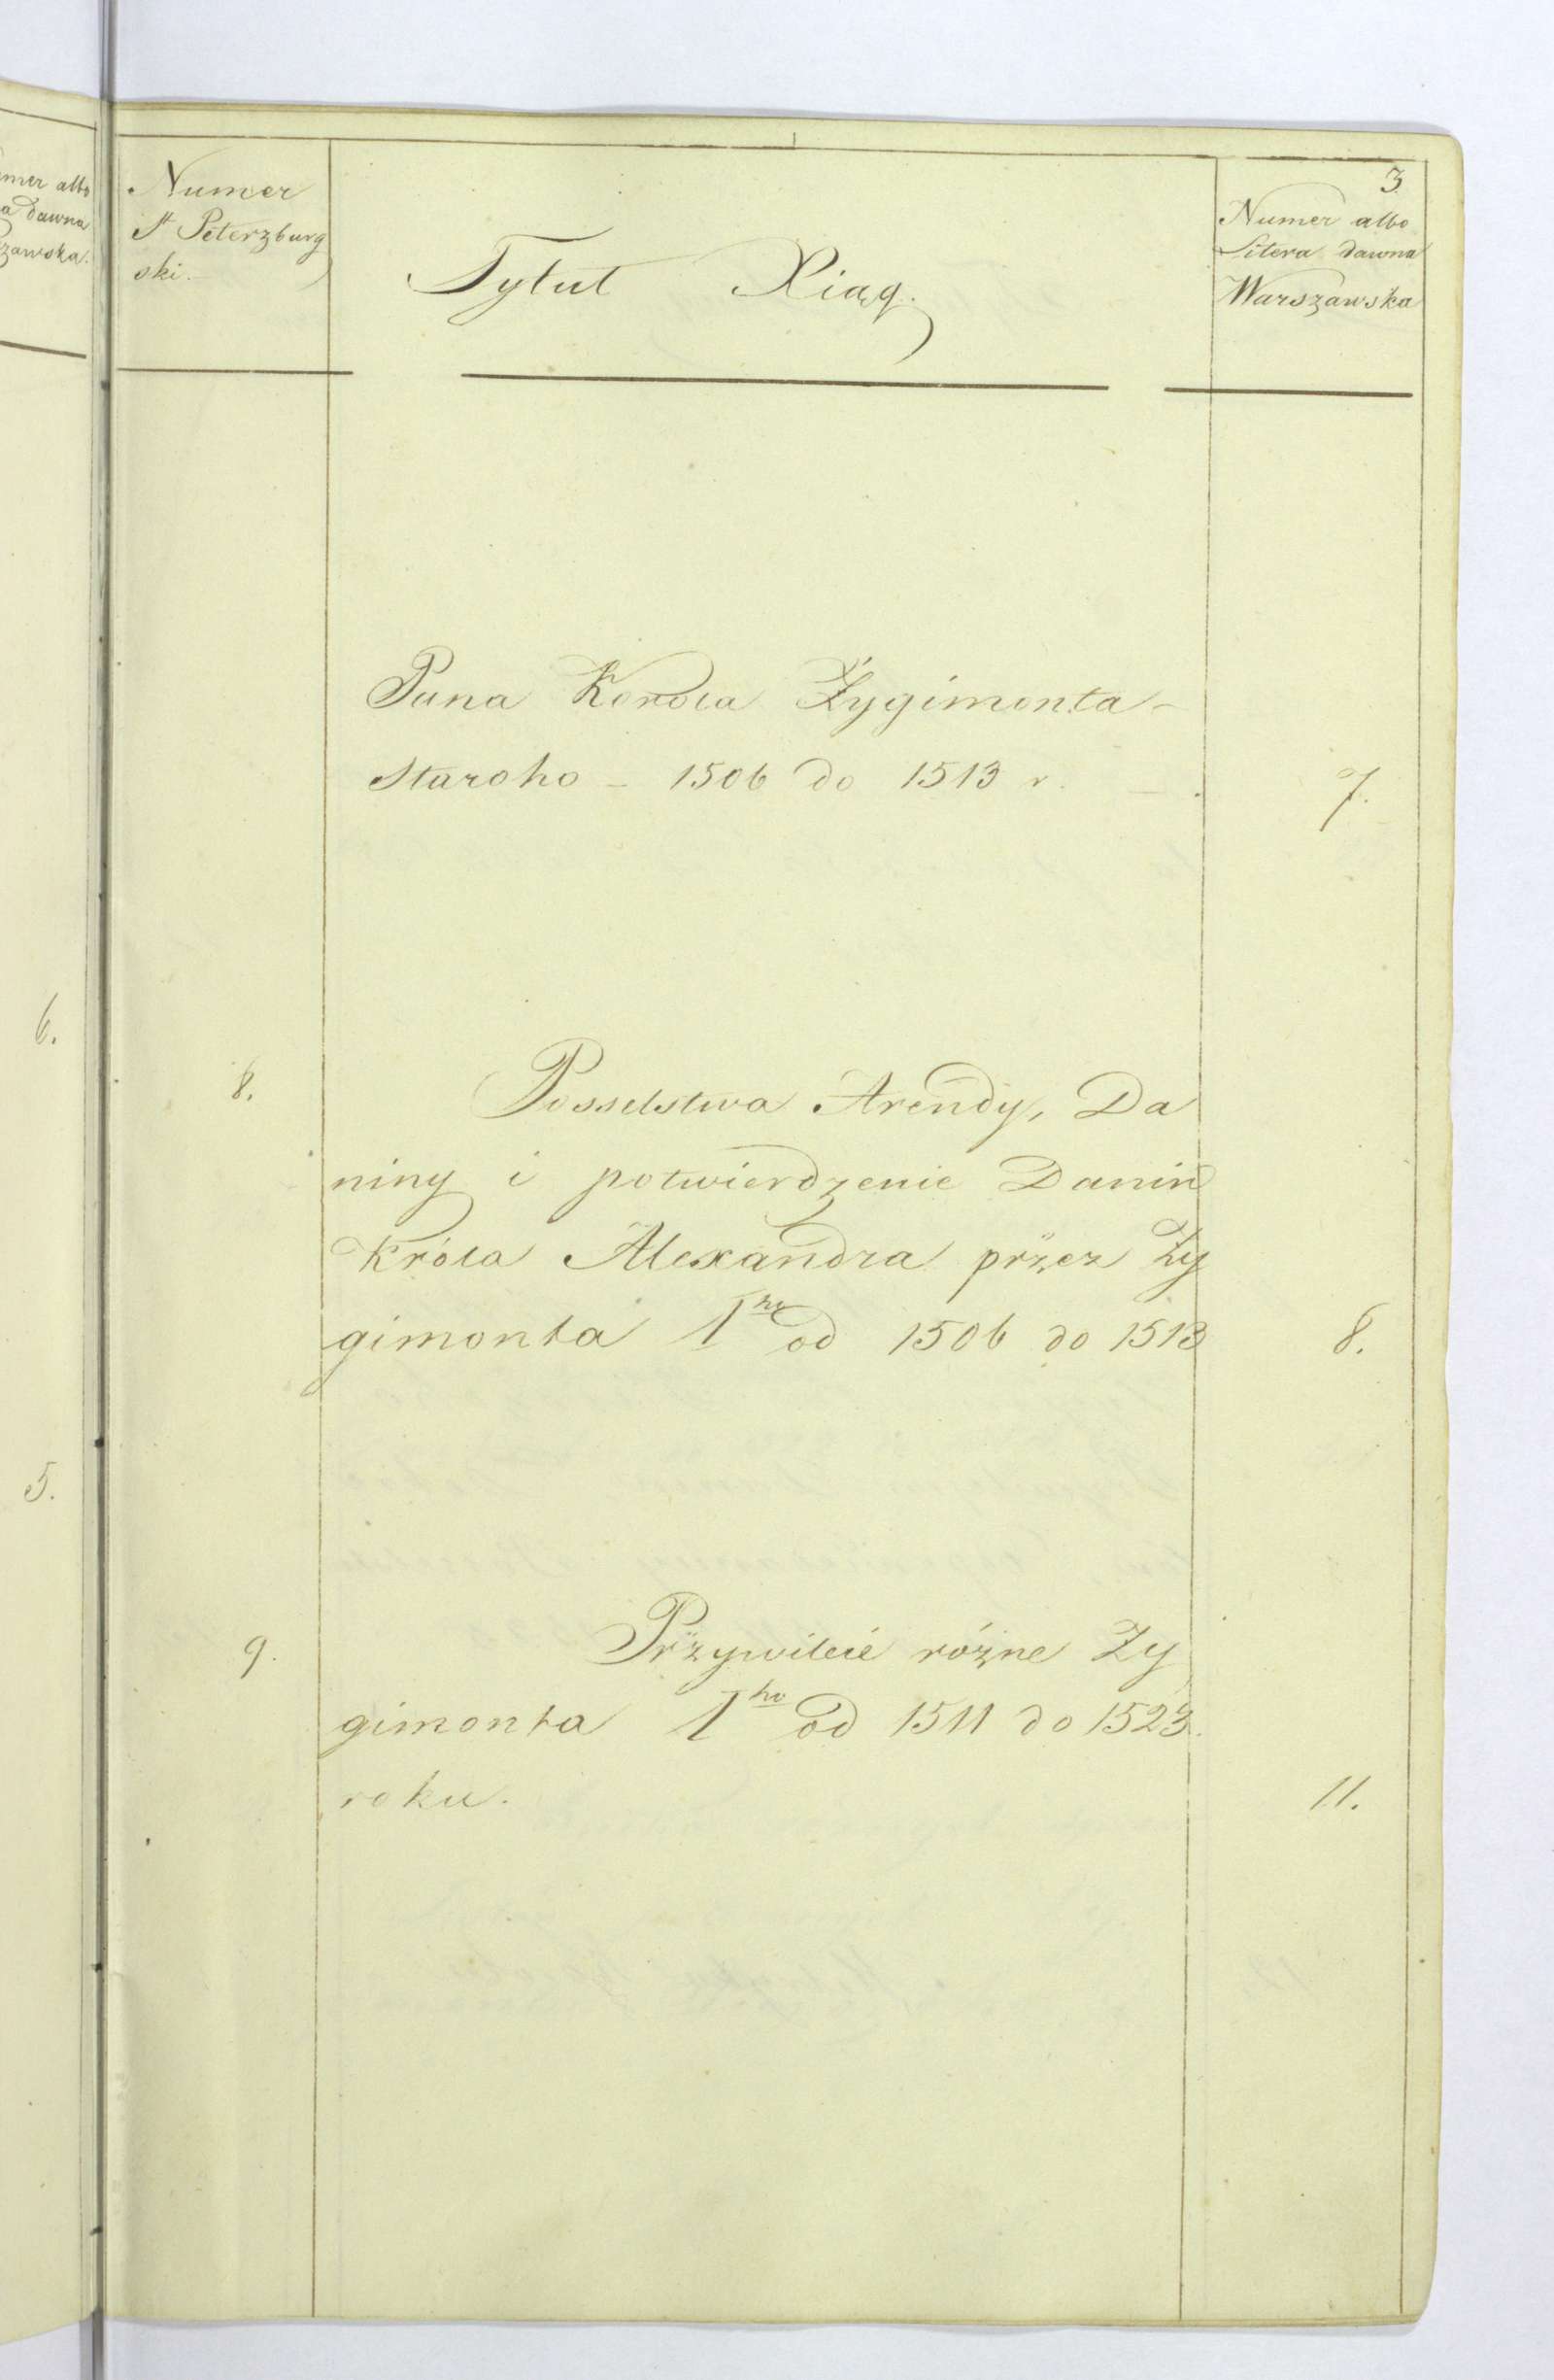 3.
Numer
St Peterzburg
ski.
Tytuł Xiąg.
Numer albo
Litera dawna
Warszawska
Pana Korola Żygimonta -
Staroho - 1506 do 1513 r. - .
7.
6.
8.
Posselstwa Arendy, Da
niny i potwierdzenie Danin
Króla Alexandra przez Zy
gimonta 1ho od 1506 do 1513
8.
5.
9.
Przywileie rożne Zy
gimonta 1ho od 1511 do 1523.
roku.
11.